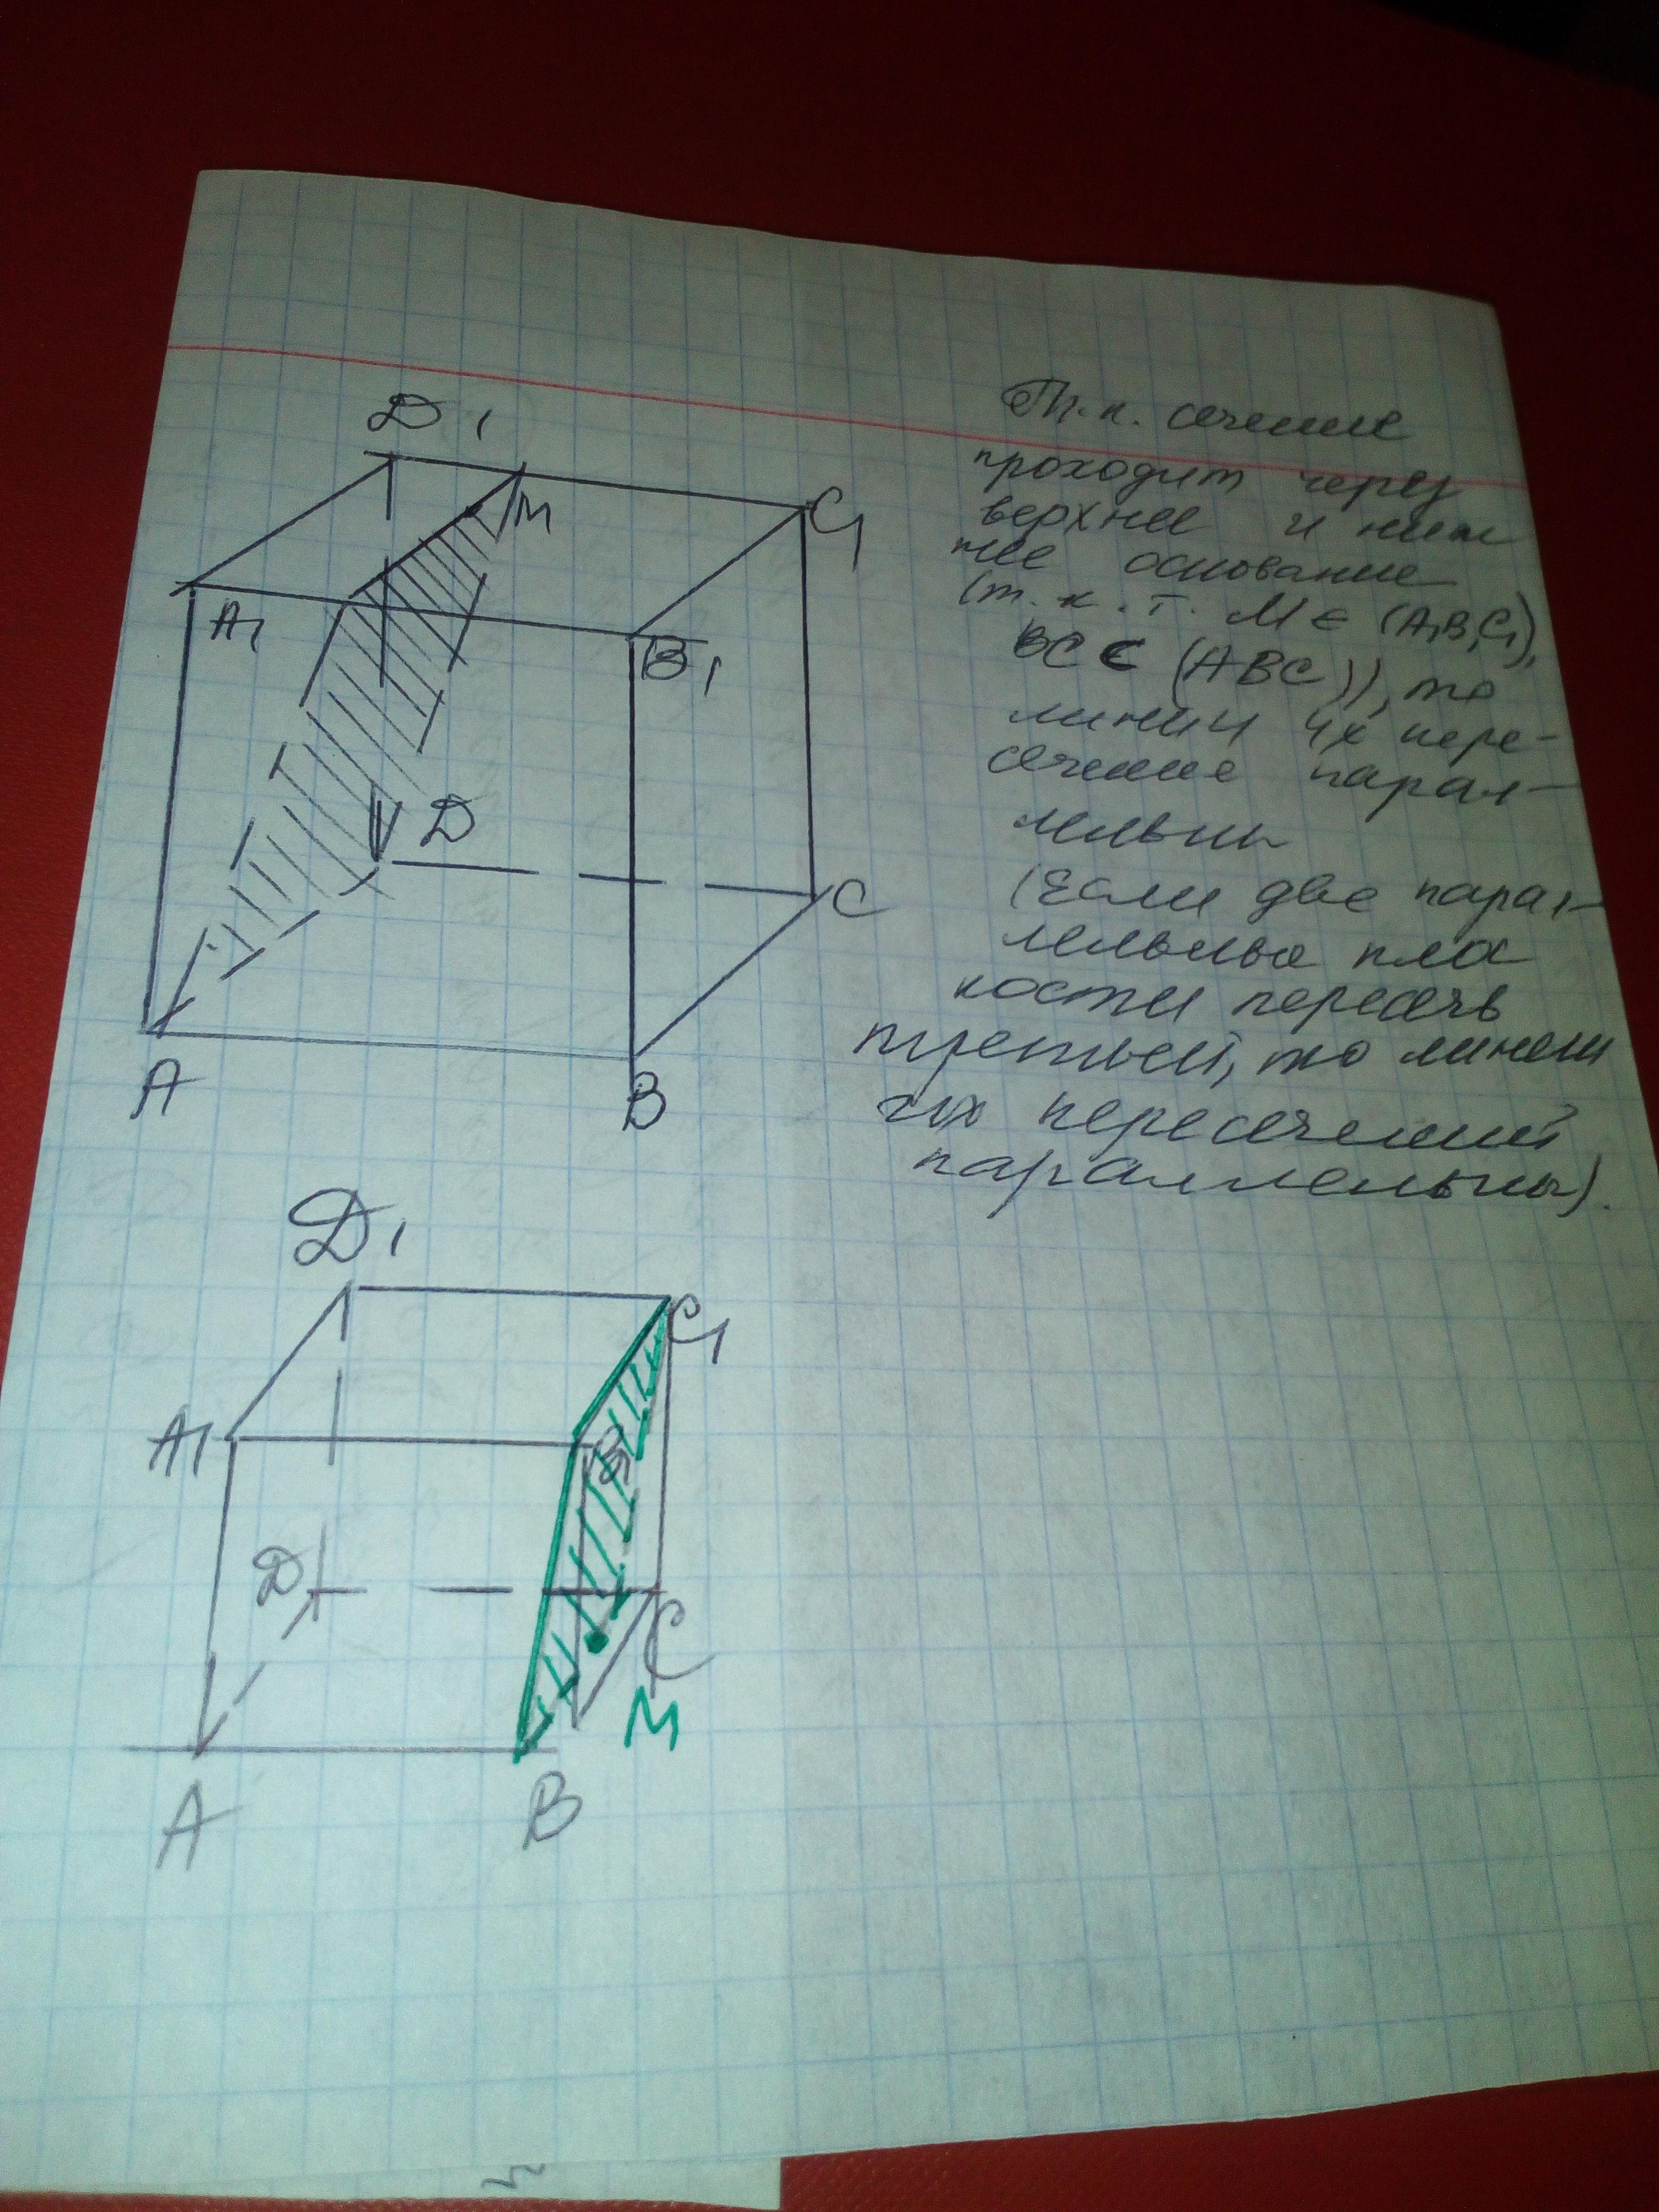 Д1
М
С1
А1
В1
Д
С
А
В
Т.к. сечение
проходит через
верхнее и ниж
нее основание
(т.к. т. М ∈ (А1В1С1),
ВС ⊂ (АВС)), то
линии их пере-
сечение парал-
лельны
(Если две парал-
лельные пло
кости пересечь
третьей, то линии
их пересечений
параллельны).
Д1
С1
А1
В1
Д
С
М
А
В